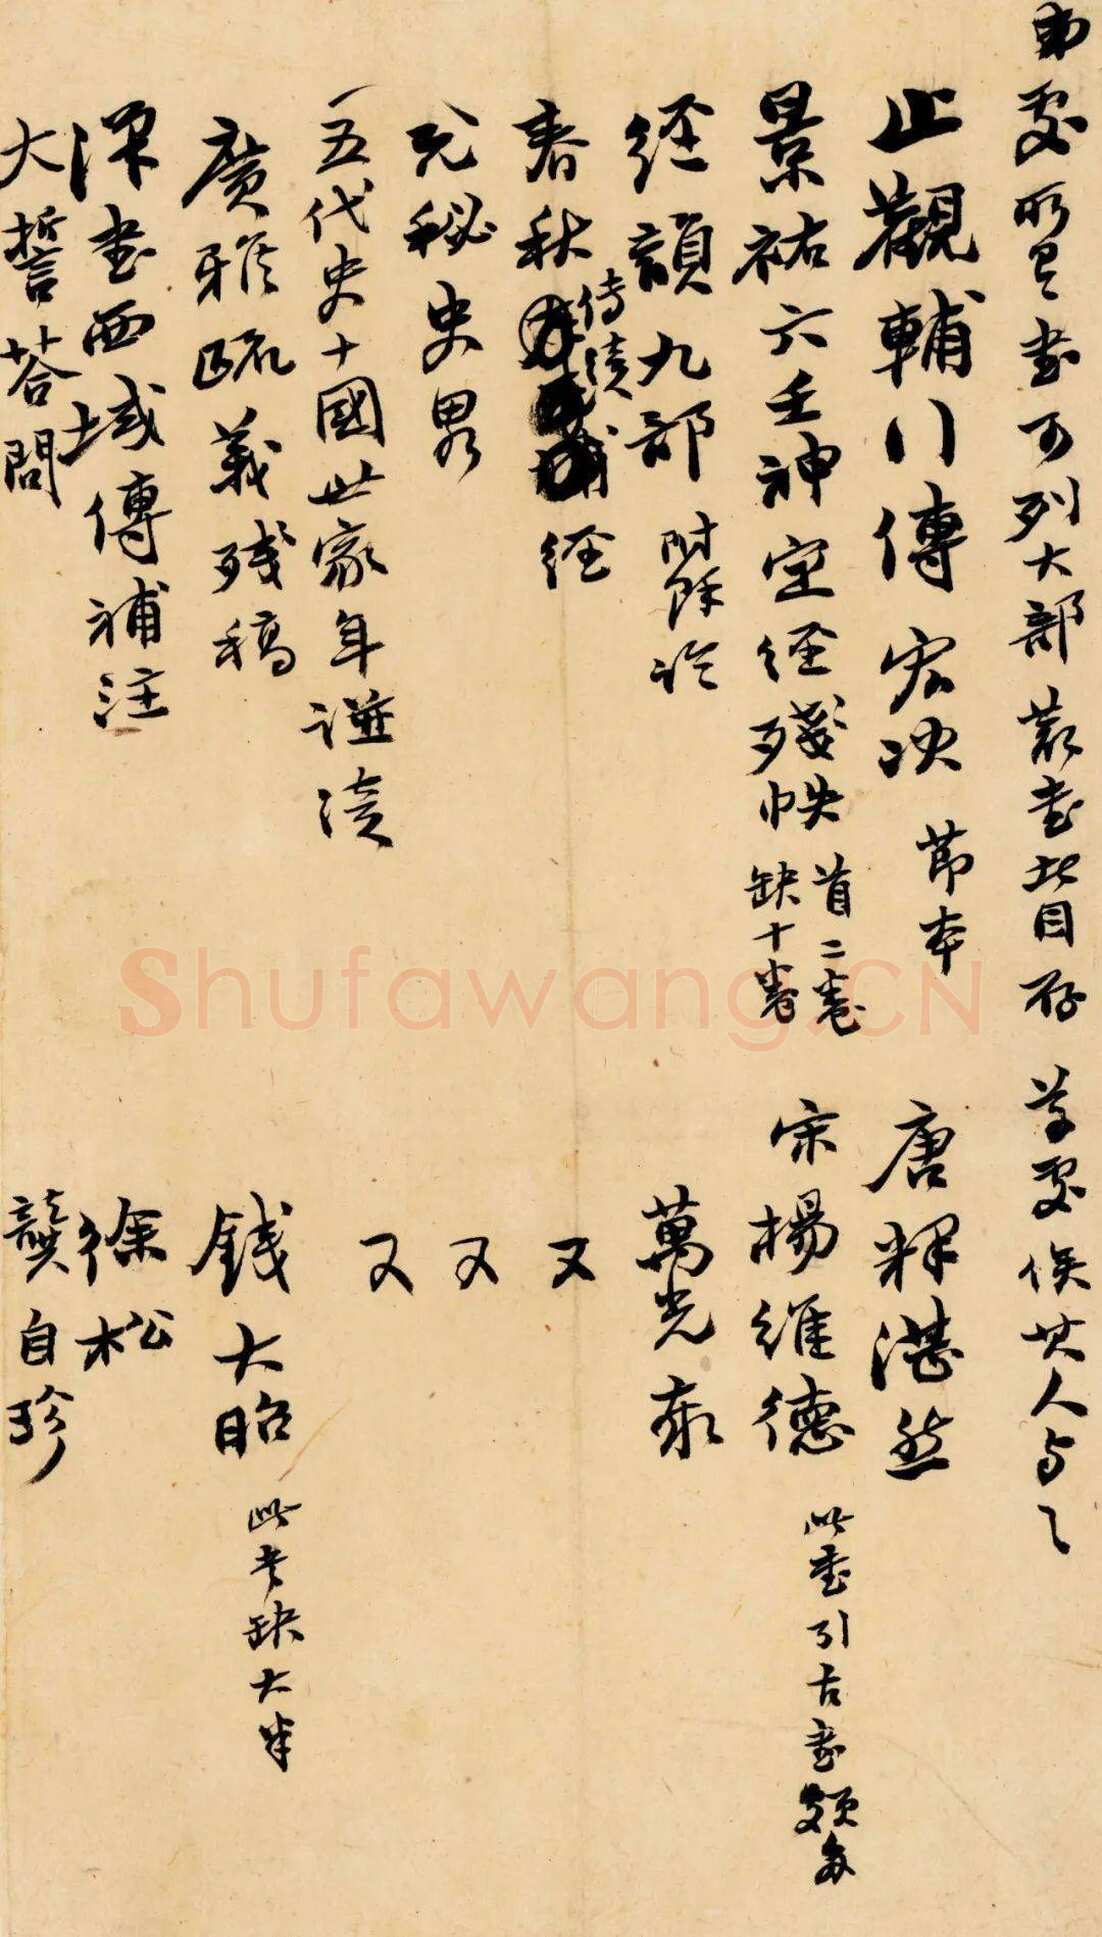 弟處所有書可列大部叢書者目存 尊處俟其人與之
止觀輔行傳宏決 節本 唐釋湛然
景祐六壬神定經殘帙 首二卷 缺十卷 宋楊維德 此書引古書頗多
經韻九部 附餘論 萬光泰
春秋傳續經 又
元秘史畧 又
五代史十國世家年譜續 又
廣雅疏義殘稿 錢大昭 此書缺大半
漢書西域傳補注 徐松
大誓荅問 龔自珍
Shufawang.CN